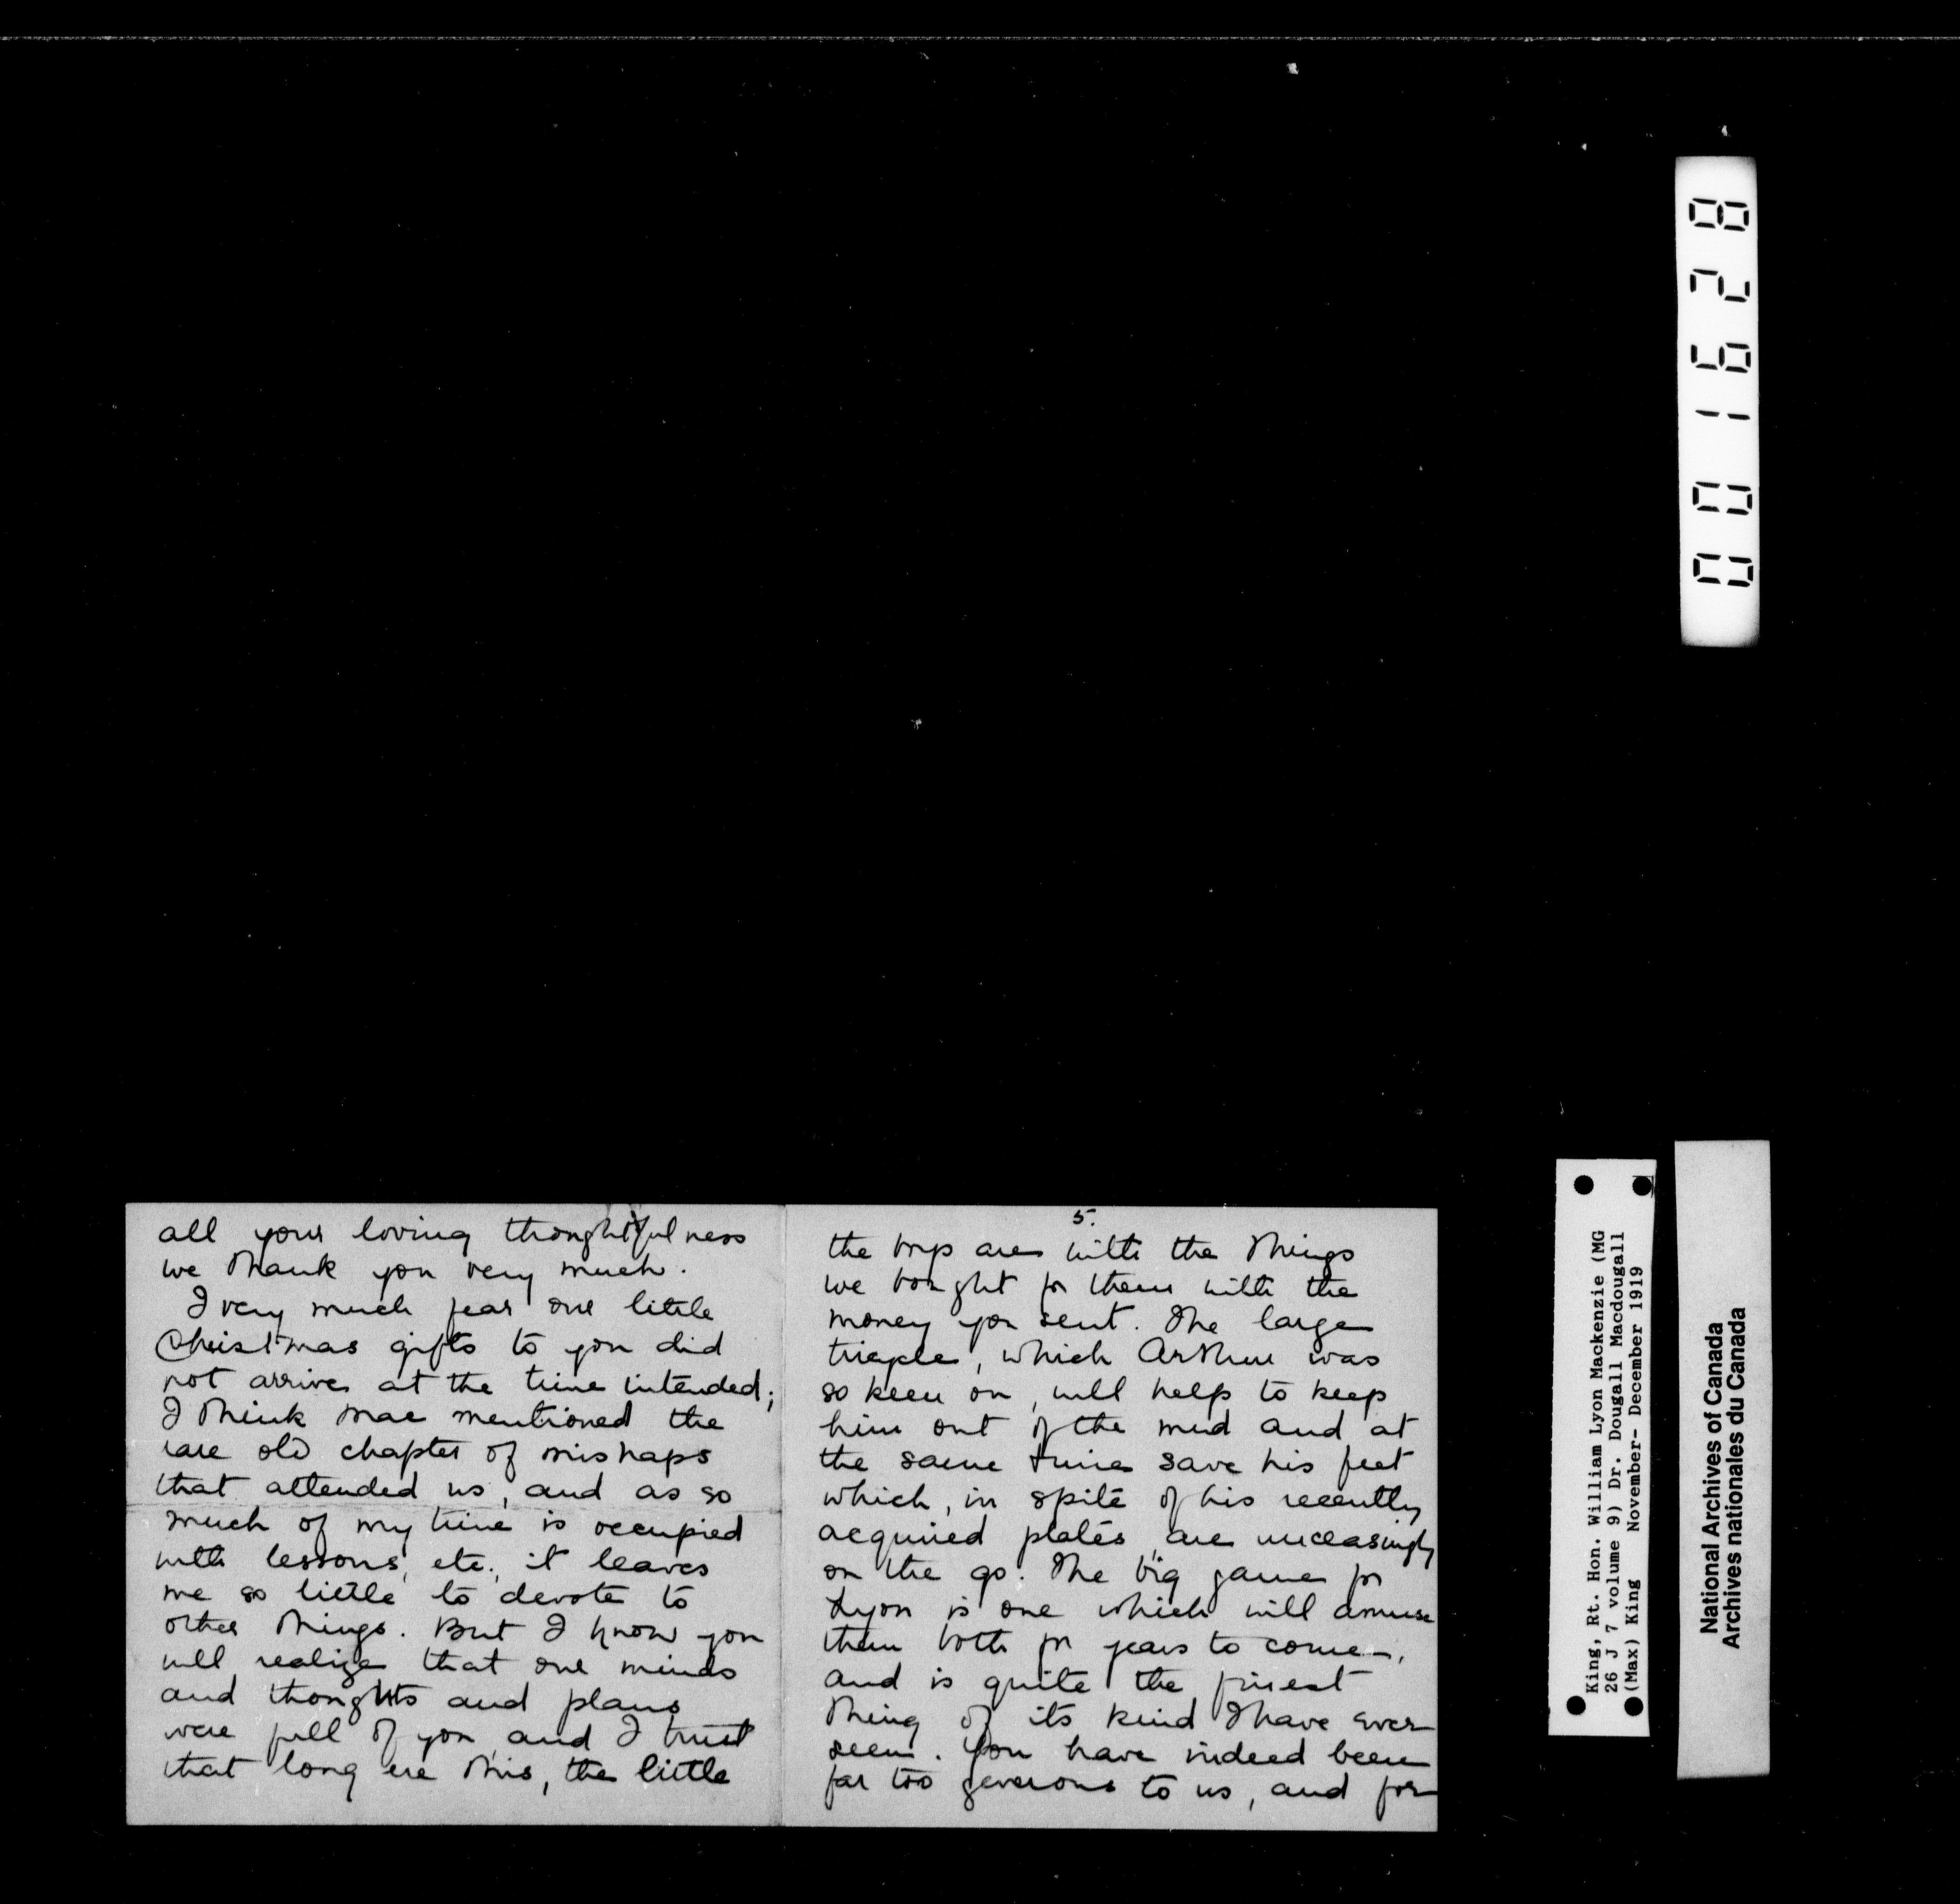 all your loving thoughtfulness
we thank you very much.
I very much fear our little
Christmas gifts to you did
not arrive at the time intended;
I think Mac mentioned the
rare old chapter of mishaps
that attended us, and as so
much of my time is occupied
with lessons, etc., it leaves
me so little to devote to
other things. But I know you
will realize that our minds
and thoughts and plans
were full of you, and I trust
that long ere this, the little
5.
the boys are with the things
we bought for them with the
money you sent. The large
tricycle, which Arthur was
so keen on, will help to keep
him out of the mud and at
the same time save his feet
which, in spite of his recently
acquired plates, are unceasingly
on the go. The big game for
Lyon is one which will amuse
them both for years to come,
and is quite the finest
thing of its kind I have ever
seen. You have indeed been
far too generous to us, and for
0 0 1 6 2 8
King, Rt. Hon. William Lyon Mackenzie (MG
26 J 7 volume 9) Dr. Dougall Macdougall
(Max) King November- December 1919
National Archives of Canada
Archives nationales du Canada